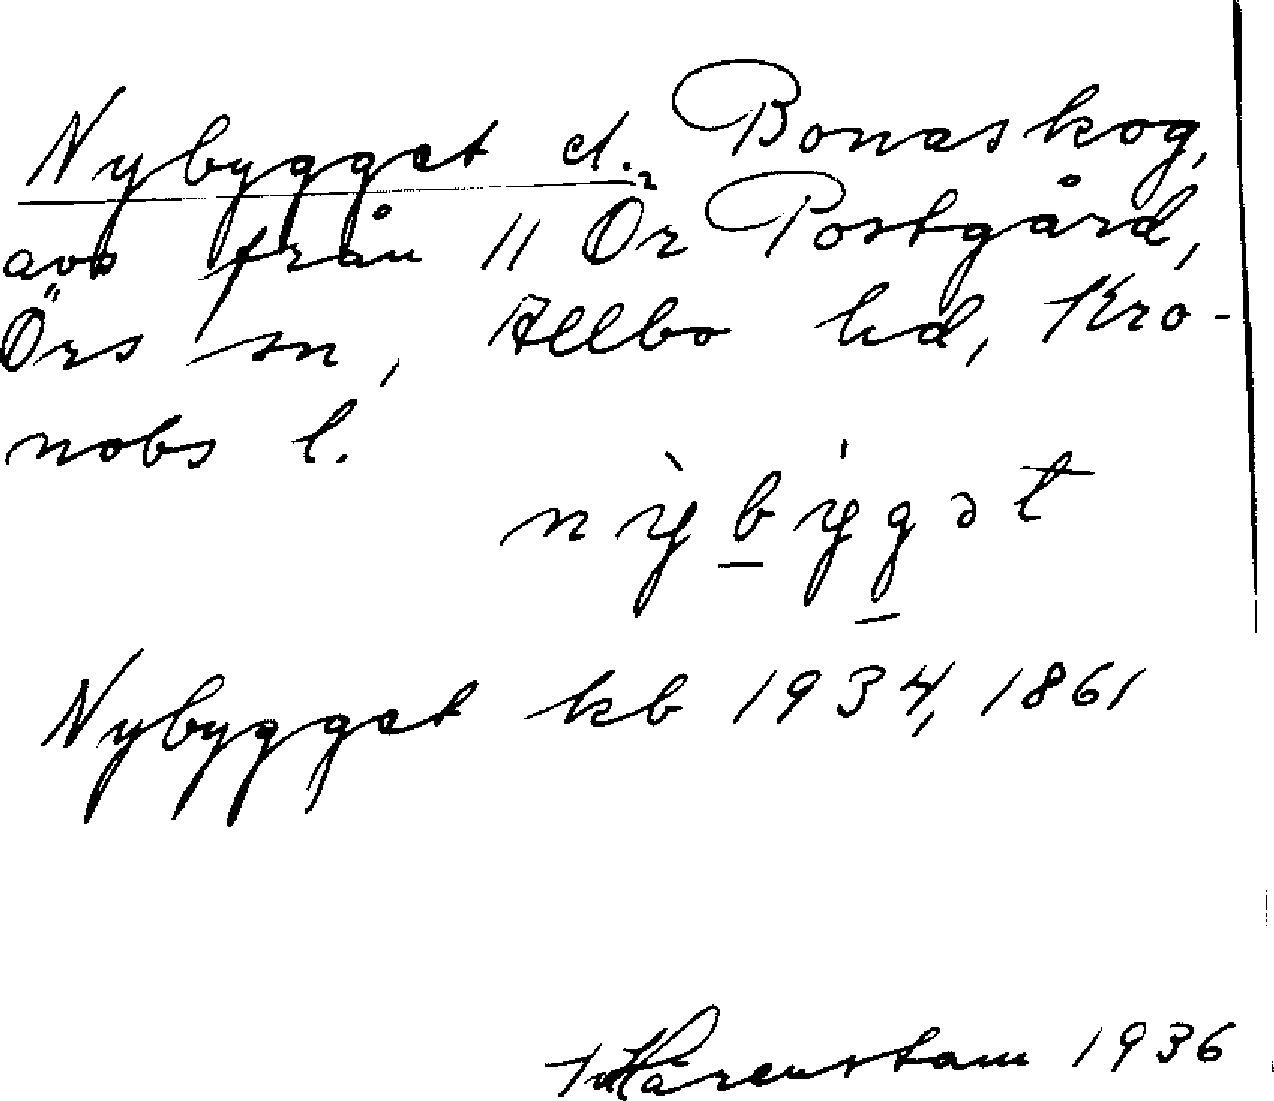 Nybygget el. Bonaskog,
avs från 11 Ör Postgård,
Örs sn, Allbo hd, Kro-
nobs l.
nỳbýgət
Nybygget kb 1934, 1861
Härenstam 1936